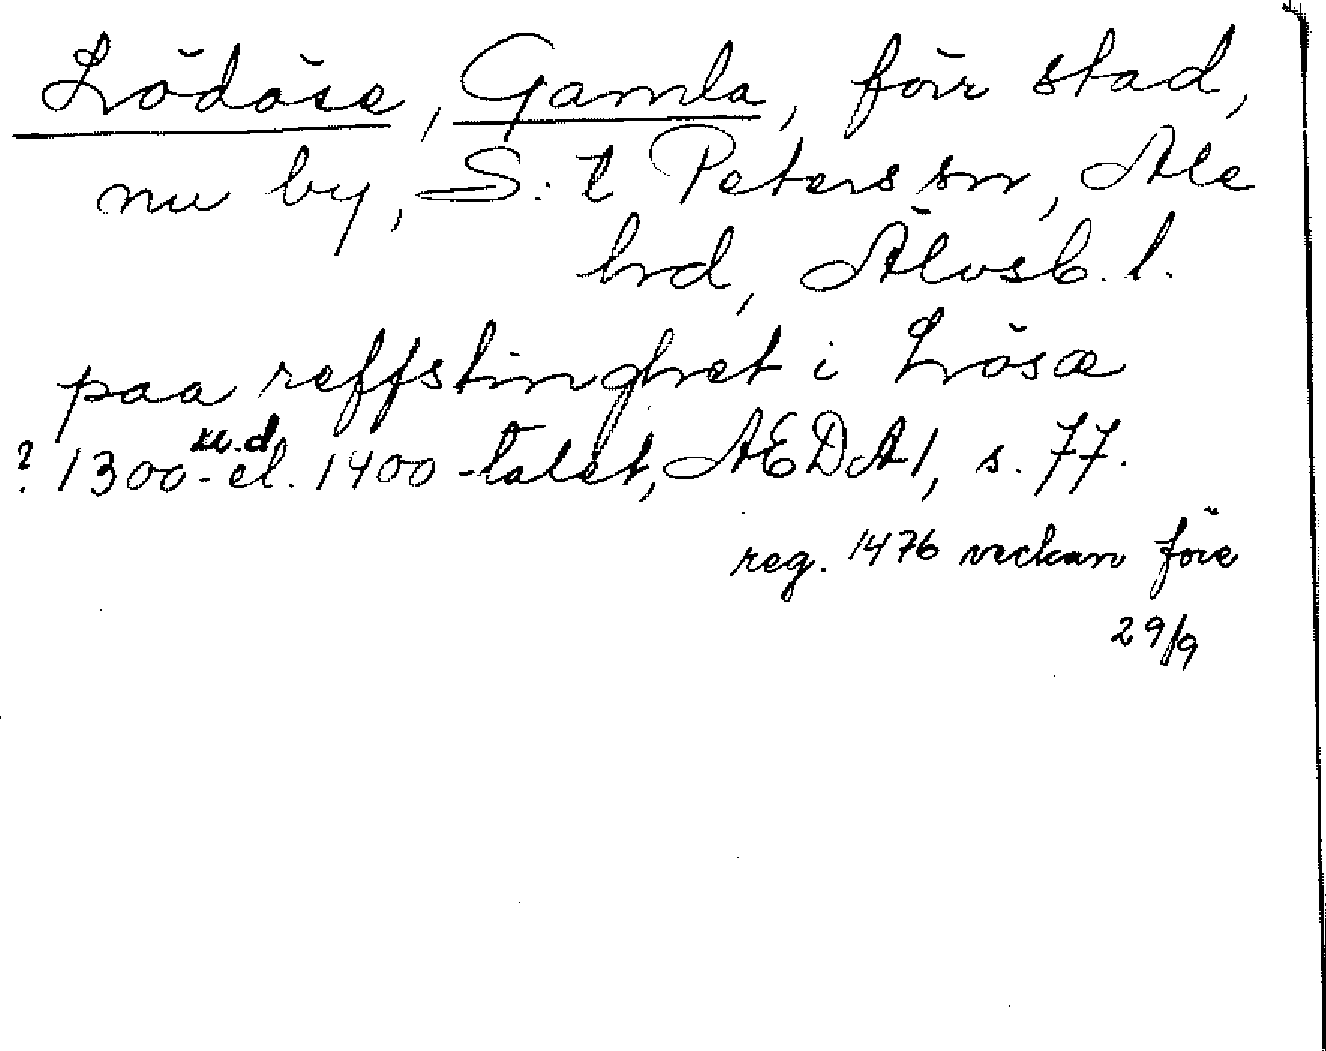 Lödöse, Gamla, förr stad,
nu by, S:t Peters sn, Ale
hd, Älvsb. l.
paa reffstinghet i Lösæ
u.d.
? 1300- el. 1400-talet, AEDA1, s. 77.
reg. 1476 veckan före
29/9